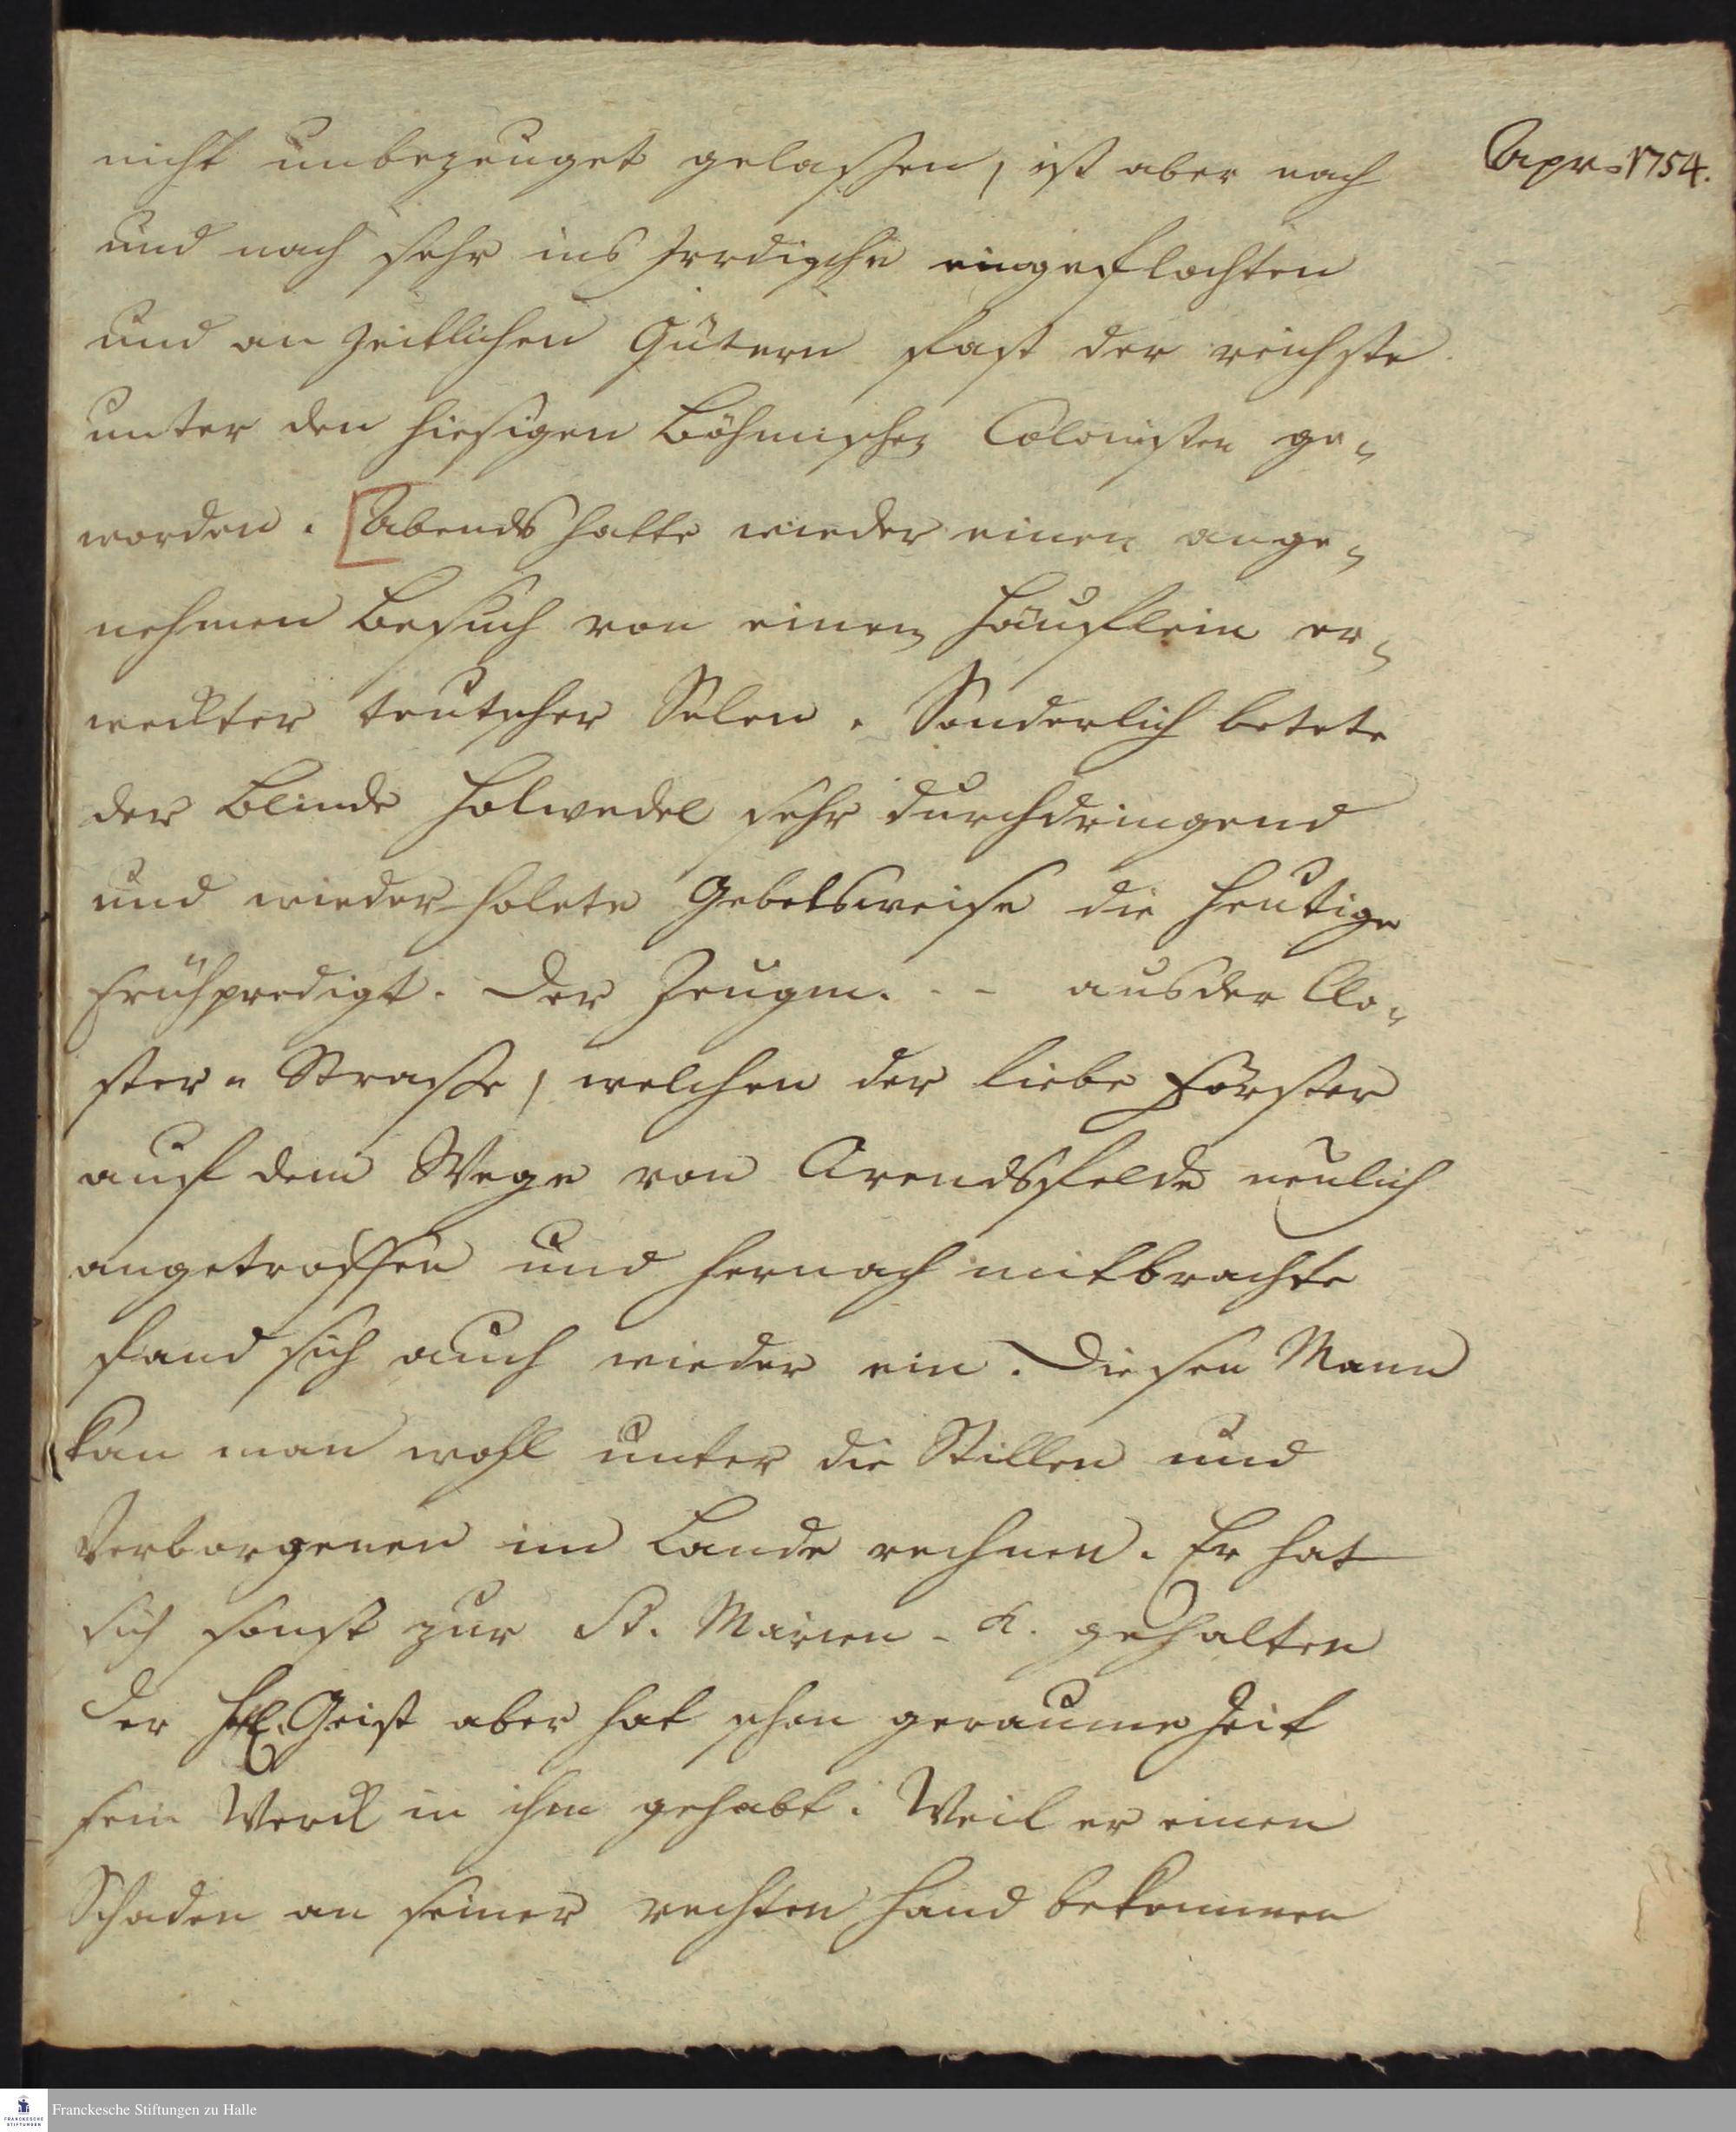 Apr. 1754.
nicht unbezeuget gelaßen, ist aber nach
und nach sehr ins Irrdische eingeflochten
und an zeitlichen Gütern fast der reichste
unter den hiesigen Böhmischen Colonisten ge-
worden. [Abends hatte wieder einen ange-
nehmen Besuch von einem Häuflein er-
weckter teutscher Selen. Sonderlich betete
der Blinde Holwedel sehr durchdringend
und wiederholete Gebetsweise die heutige
Frühpredigt. Der Zeugm. - - aus der Clo-
ster-Straße, welchen der liebe Förster
auf dem Wege von Arendsfelde neulich
angetroffen und hernach mitbrachte
fand sich auch wieder ein. Diesen Mann
kan man wohl unter die Stillen und
Verborgenen im Lande rechnen. Er hat
sich sonst zur St. Marien-K. gehalten
der Hl. Geist aber hat schon geraume Zeit
sein Werck in ihm gehabt. Weil er einen
Schaden an seiner rechten Hand bekommen
FRANCKESCHE STIFTUNGEN
Franckesche Stiftungen zu Halle